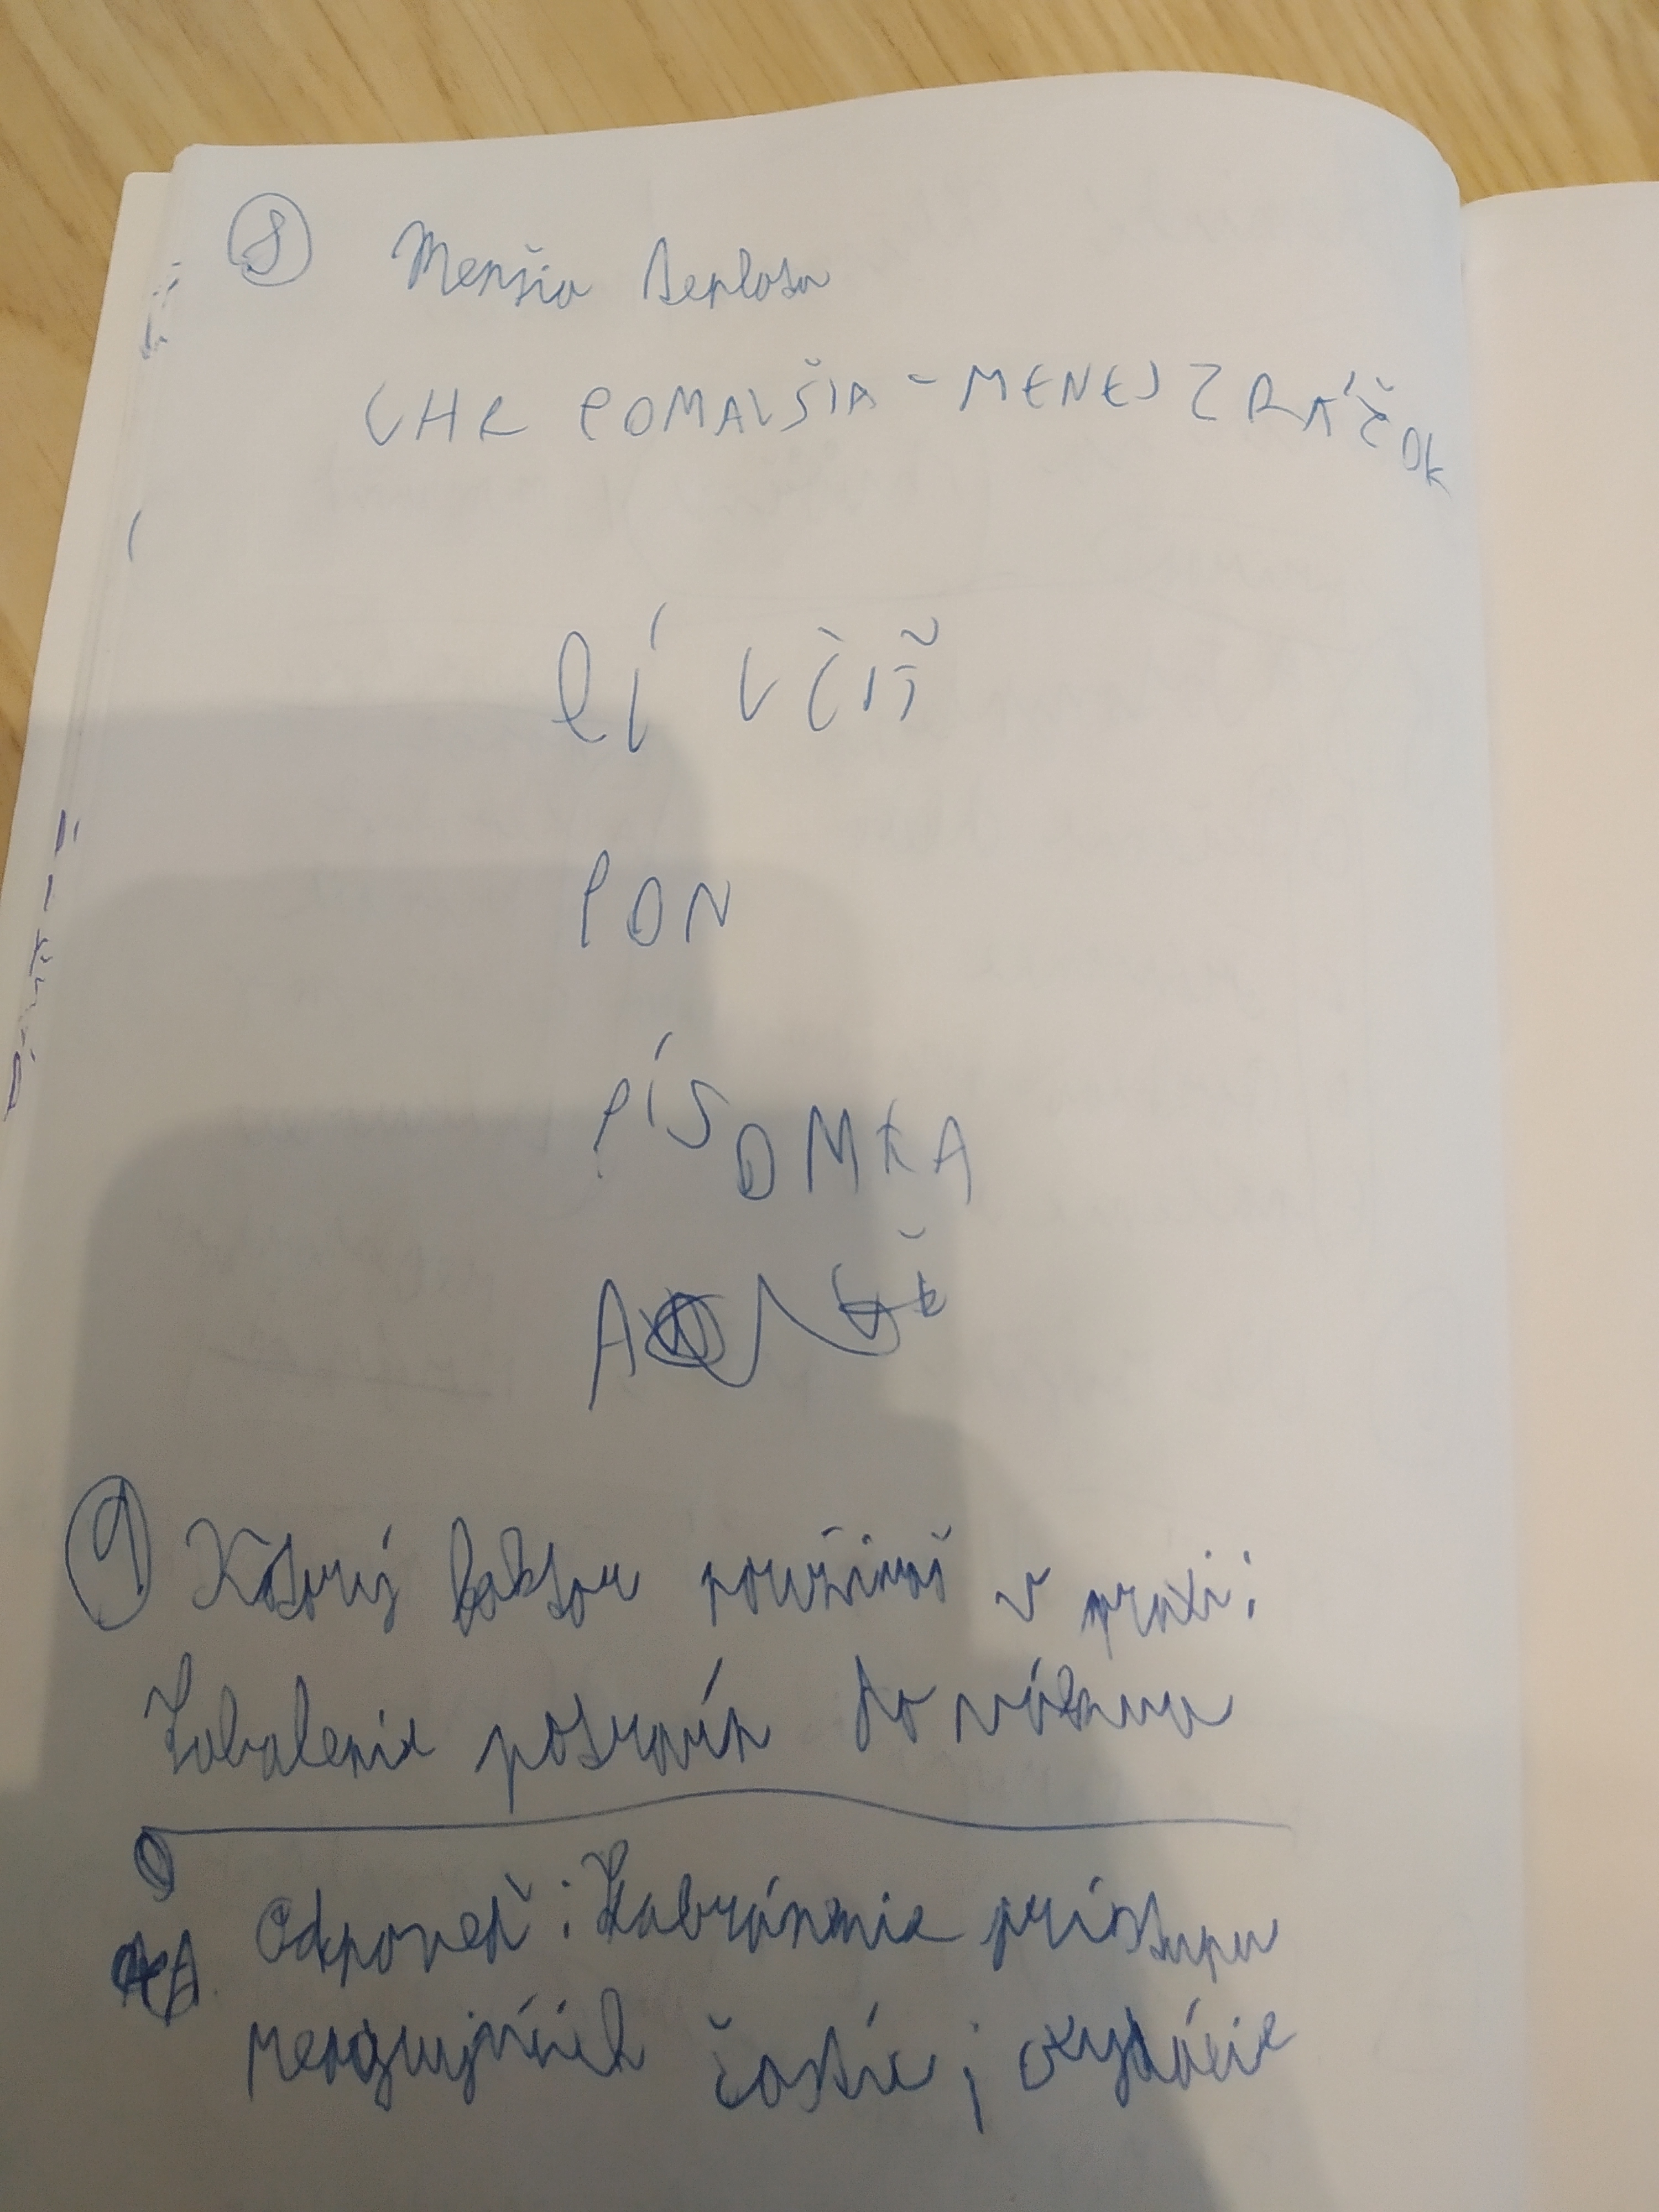 8 Menšia teplota
CHR POMALŠIA - MENEJ ZRÁŽOK
PON
PÍSOMKA
9 Ktorý faktor používaš v praxi:
Zabalenie potravín do vákua
Odpoveď: Zabránenie prístupu
reagujúcich častíc; oxydácie